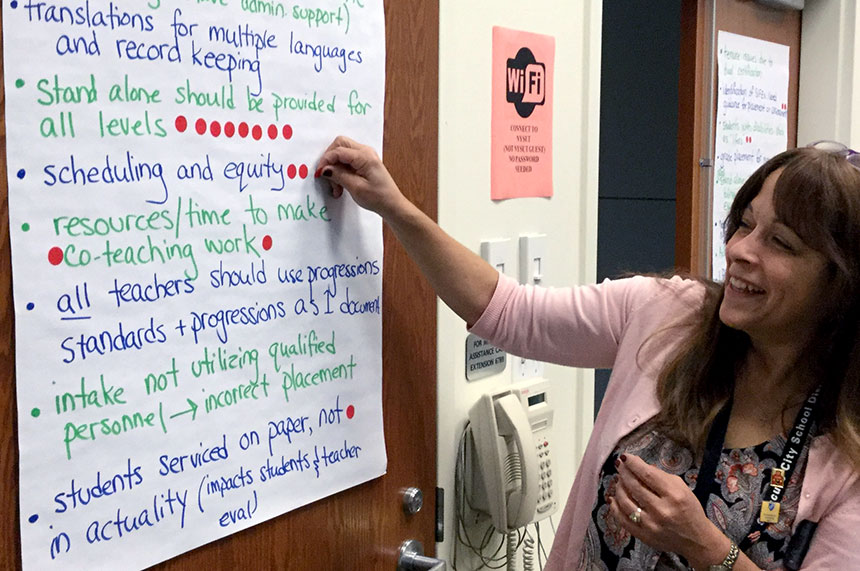 admin. support)
• translations for multiple languages
and record keeping
• Stand alone should be provided for
all levels
• scheduling and equity
• resources/time to make
Co-teaching work
• all teachers should use progressions
standards + progressions as 1 document
• intake not utilizing qualified
personnel → incorrect placement
• students serviced on paper, not
in actuality (impacts students & teacher
eval)
WiFi
CONNECT TO
NYSET
(NOT NYSET GUEST)
NO PASSWORD
NEEDED
FOR
ASSISTANCE CALL
EXTENSION
due to
students with disabilities
placement
City School